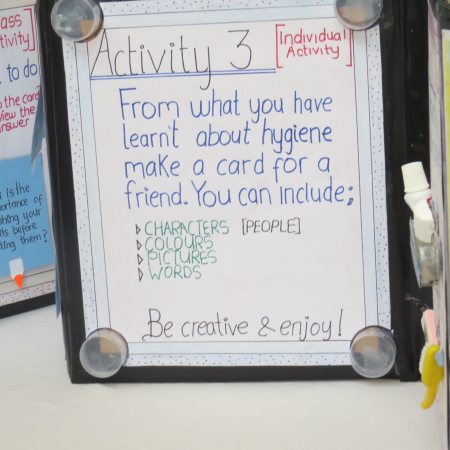 Activity 3
[Individual
Activity]
From what you have
learnt about hygiene
make a card for a
friend. You can include;
CHARACTERS [PEOPLE]
COLOURS
PICTURES
WORDS
Be creative & enjoy!
to do
the card
view the
answer
is the
portance of
your
before
them?